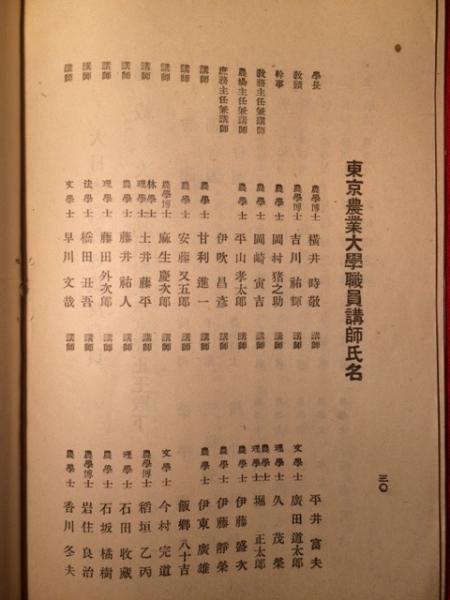 東京農業大學職員講師氏名
學長 農學博士 橫井時敬 講師 平井富夫
教頭 農學博士 吉川祐輝 講師 文學士 廣田道太郎
幹事 農學士 岡村猪之助 講師 理學士 久茂榮
教務主任兼講師 農學士 岡崎寅吉 講師 農學士 理學士 堀正太郎
農場主任兼講師 農學士 平山孝太郎 講師 農學士 伊藤盛次
庶務主任兼講師 伊吹昌彥 講師 農學士 伊藤靜榮
講師 農學士 甘利進一 講師 農學士 伊東廣雄
講師 農學士 安藤又五郎 講師 飯鄉八十吉
講師 農學博士 麻生慶次郎 講師 文學士 今村完道
講師 林學士 理學士 土井藤平 講師 農學博士 稻垣乙丙
講師 農學士 藤井祐人 講師 理學士 石田收藏
講師 理學士 藤田外次郎 講師 農學士 石坂橘樹
講師 法學士 橋田丑吾 講師 農學博士 岩住良治
講師 文學士 早川文哉 講師 農學士 香川冬夫
三〇